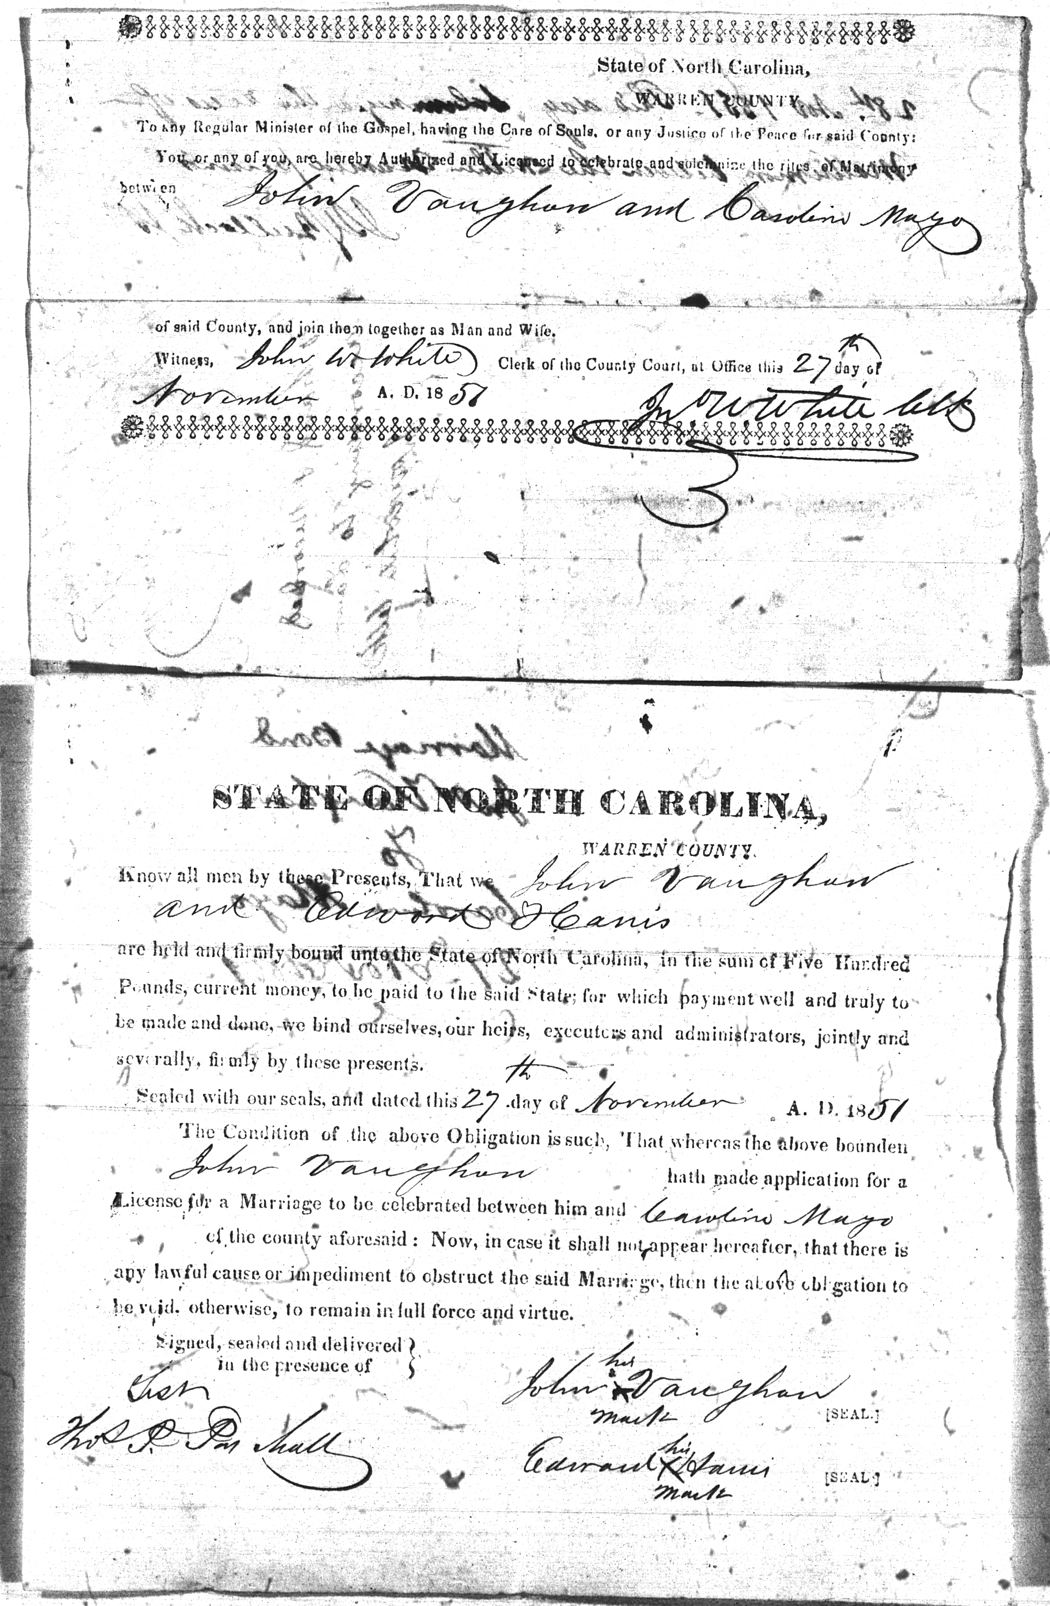 State of North Carolina,
WARREN COUNTY.
To any Regular Minister of the Gospel, having the Care of Souls, or any Justice of the Peace for said County:
You, or any of you, are hereby Authorized and Licensed to celebrate and solemnize the rites of Matrimony
between
John Vaughan and Caroline Mayo
of said County, and join them together as Man and Wife.
Witness, John W. White Clerk of the County Court, at Office this 27th day of
November A. D. 1851
Jno W. White Clk
Marriage Bond
To
STATE OF NORTH CAROLINA,
WARREN COUNTY.
Know all men by these Presents, That we John Vaughan
and Edward Harris
are held and firmly bound unto the State of North Carolina, in the sum of Five Hundred
Pounds, current money, to be paid to the said State; for which payment well and truly to
be made and done, we bind ourselves, our heirs, executors and administrators, jointly and
severally, firmly by these presents.
Sealed with our seals, and dated this 27th day of November A. D. 1851
The Condition of the above Obligation is such, That whereas the above bounden
John Vaughan hath made application for a
License for a Marriage to be celebrated between him and Caroline Mayo
of the county aforesaid: Now, in case it shall not appear hereafter, that there is
any lawful cause or impediment to obstruct the said Marriage, then the above obligation to
be void, otherwise, to remain in full force and virtue.
Signed, sealed and delivered
in the presence of
Test
Thos P. Paschall
his
John X Vaughan [SEAL.]
mark
his
Edward X Harris [SEAL]
mark